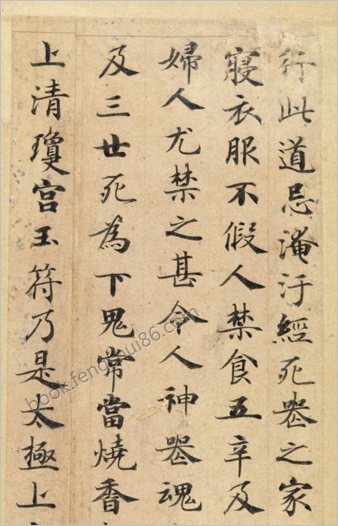 行此道忌淹汙經死喪之家
寢衣服不假人禁食五辛及
婦人尤禁之甚令人神喪魂
及三世死為下鬼常當燒香
上清瓊宮玉符乃是太極上
book.fenghui86.com